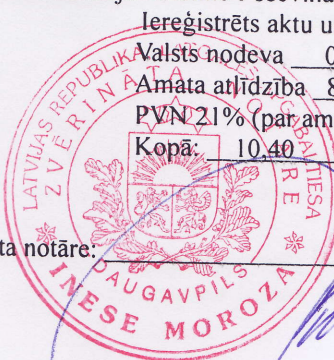 Iereģistrēts aktu u
Valsts nodeva 0
Amata atlīdzība 8
PVN 21% (par am
Kopā: 10,40
ta notāre:
LATVIJAS REPUBLIKA, LATGALES APGABALTIESA
ZVĒRINĀTA NOTĀRE
DAUGAVPILS
INESE MOROZA